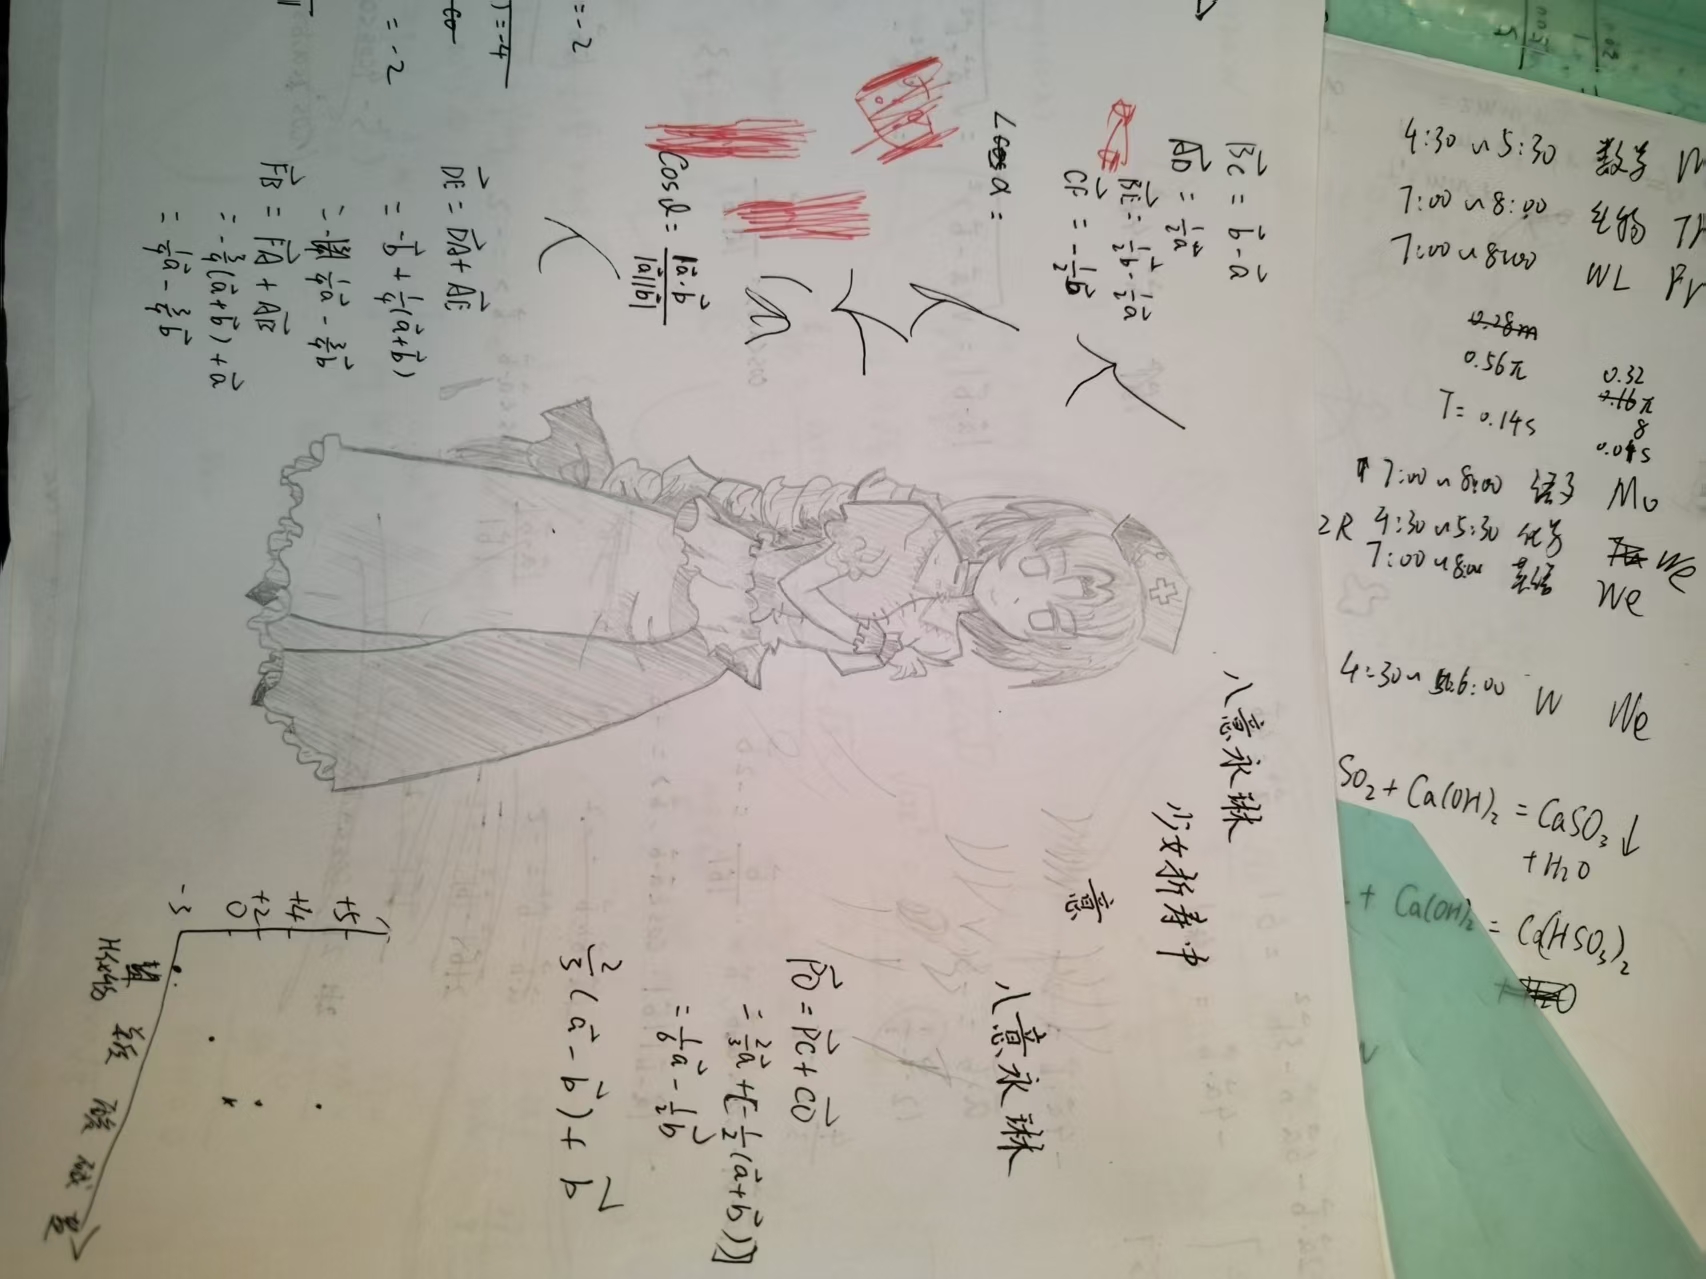 = -2
= -2
BC⃗ = b⃗ - a⃗
AD⃗ = 1/2 a⃗
BE⃗ = 1/2 b⃗ - 1/2 a⃗
CF⃗ = -1/2 b⃗
α =
Cosα = a⃗·b⃗ / |a⃗||b⃗|
DE⃗ = DA⃗ + AE⃗
= -b⃗ + 1/4(a⃗+b⃗)
= 1/4 a⃗ - 3/4 b⃗
FB⃗ = FA⃗ + AB⃗
= -3/4(a⃗+b⃗) + a⃗
= 1/4 a⃗ - 3/4 b⃗
八意永琳
少女折寿中
意
八意永琳
PO⃗ = PC⃗ + CO⃗
= 2/3 a⃗ + [-1/2(a⃗+b⃗)]
= 1/6 a⃗ - 1/2 b⃗
2/3(a⃗ - b⃗) + b⃗
+5
+4
+2
0
-3
4:30~5:30 数学 M
7:00~8:00 生物 Th
7:00~8:00 WL Fr
0.28π
0.56π
T= 0.14s
0.32
0.16π
8
7:00~8:00 语文 Mo
2R 4:30~5:30 化学 We
7:00~8:00 英语 We
4:30~6:00 W We
SO₂ + Ca(OH)₂ = CaSO₃↓
+ H₂O
+ Ca(OH)₂ = Ca(HSO₃)₂